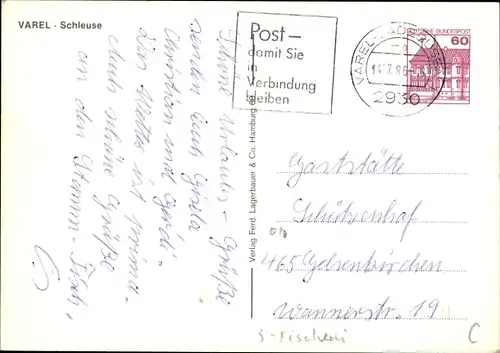 VAREL · Schleuse
Post –
damit Sie
in
Verbindung
bleiben
VAREL
2930
DEUTSCHE BUNDESPOST
60
Urlaubs-Grüße
senden Euch Gisela
Christian und Gerdi.
Das Wetter ist prima.
Auch schöne Grüße
an den Stamm-Tisch,
Verlag Ferd. Lagerbauer & Co. Hamburg
Gaststätte
Schützenhof
465 Gelsenkirchen
Wannerstr. 19
S-Fischerei
C